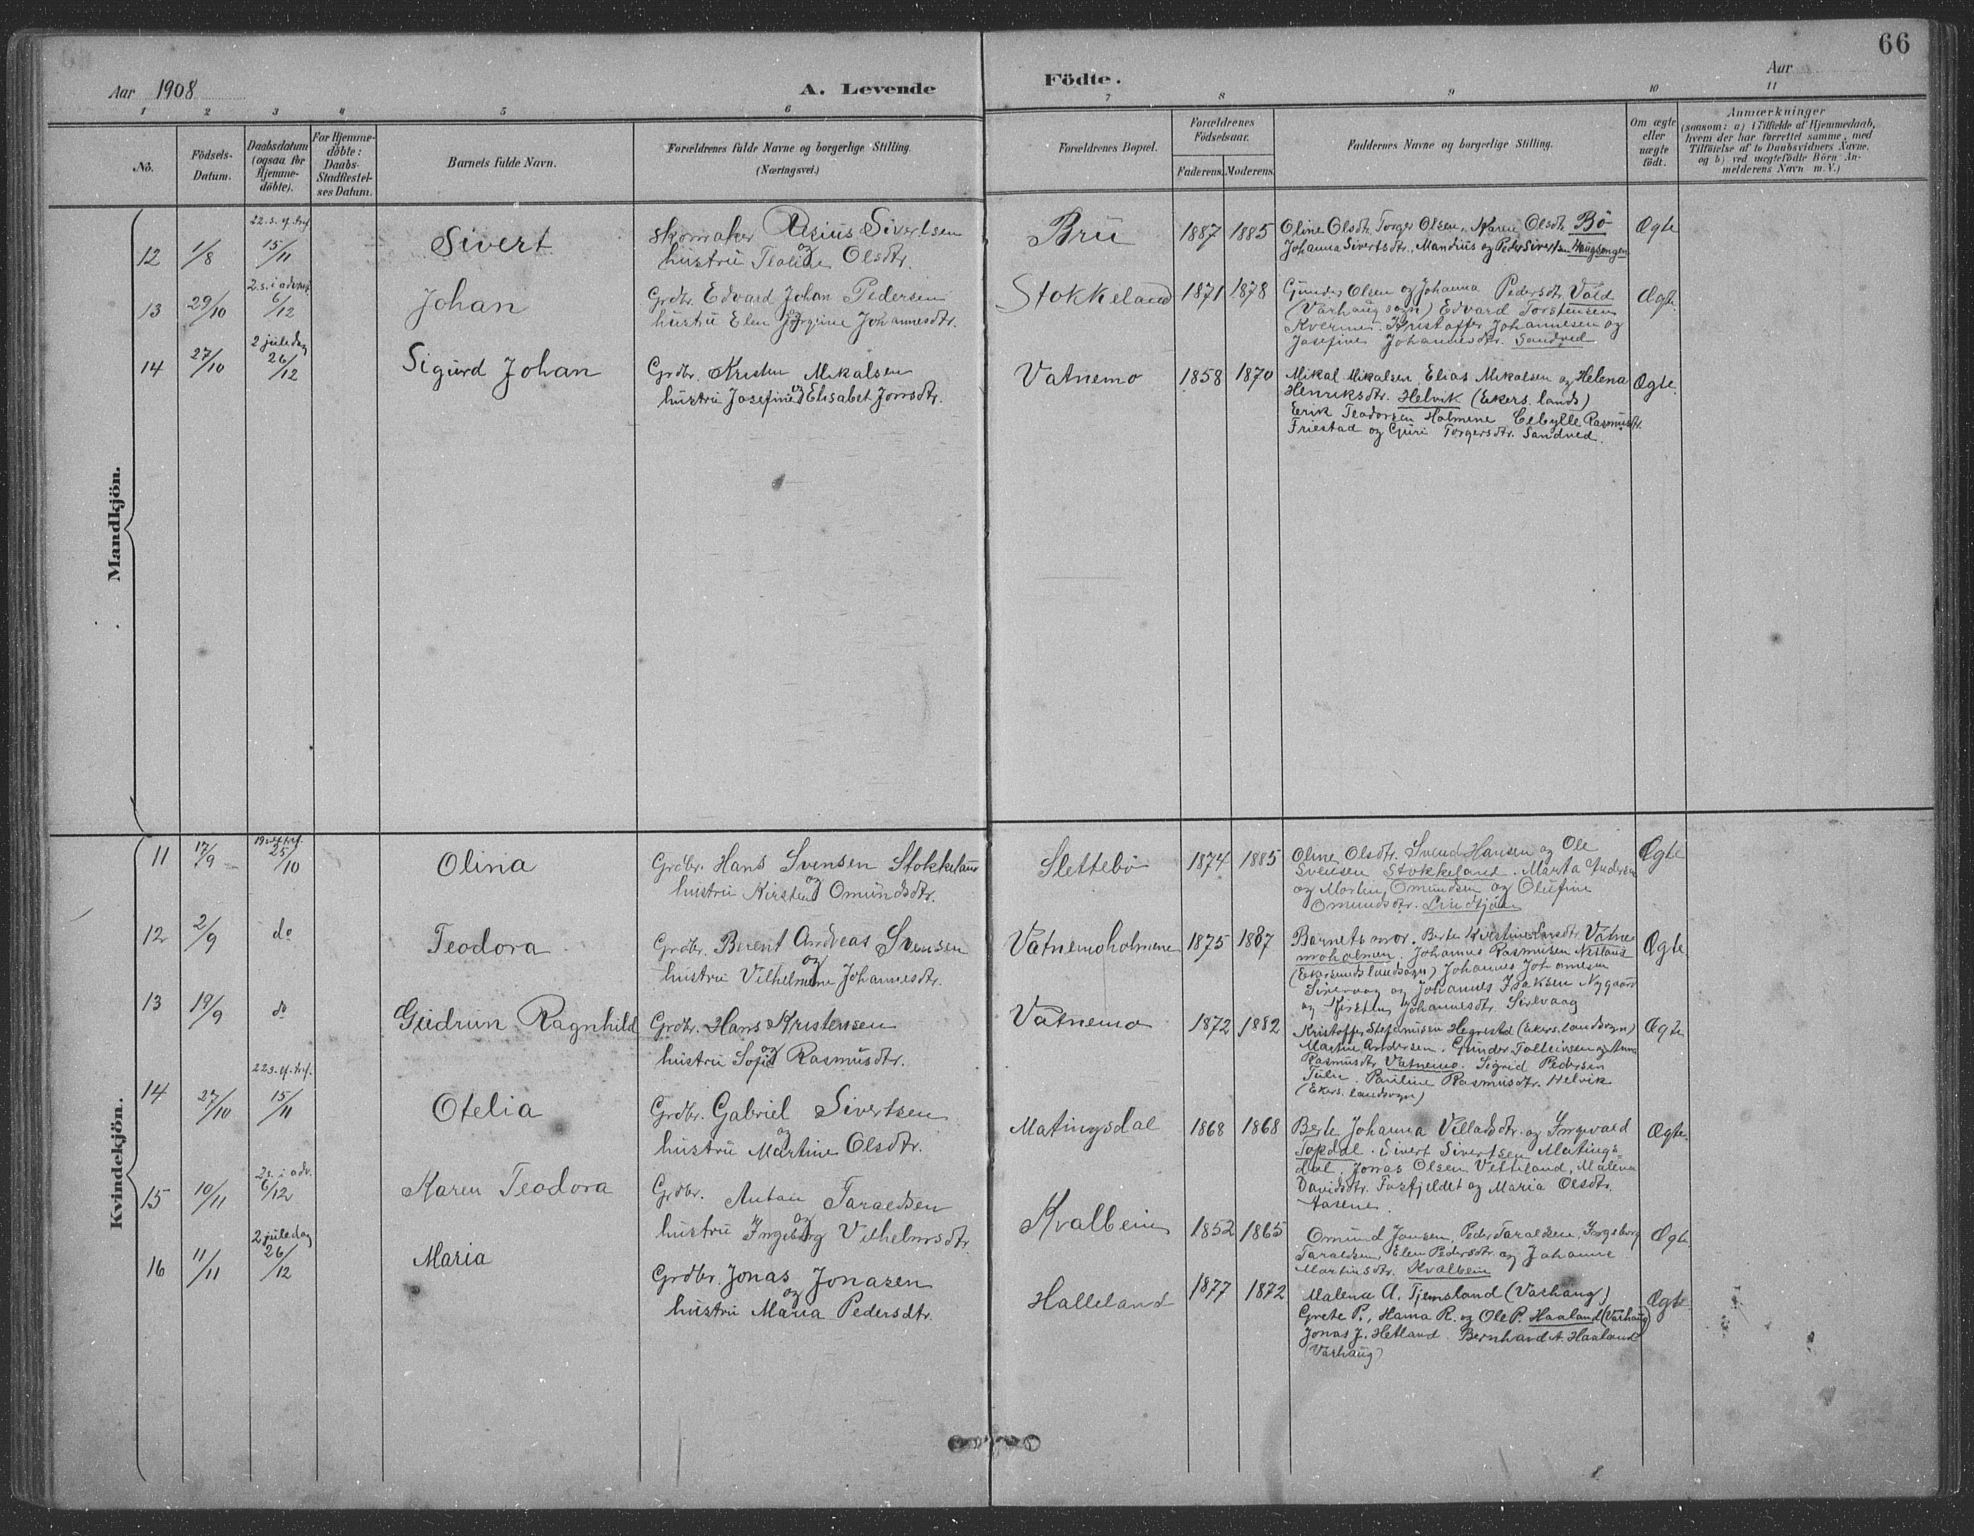 66
Aar 1908 A. Levende Födte. Aar
1 2 3 4 5 6 7 8 9 10 11
No.
Födsels-
Datum.
Daabsdatum
(ogsaa for
Hjemme-
döbte).
For Hjemme-
döbte:
Daabs-
Stadfæstel-
ses Datum.
Barnets fulde Navn.
Forældrenes fulde Navne og borgerlige Stilling.
(Næringsvei.)
Forældrenes Bopæl.
Forældrenes
Födselsaar.
Faderens. Moderens.
Faddernes Navne og borgerlige Stilling.
Om ægte
eller
uægte
födt.
Anmærkninger
(saasom: a) i Tilfælde af Hjemmedaab,
hvem der har forrettet samme, med
Tilföielse af to Daabsvidners Navne,
og b) ved uægtefödte Börn An-
melderens Navn m. V.)
Mandkjön.
12 1/8 22. s. e. tref. 15/11 Sivert
skomaker Asius Sivertsen
og
hustru Olsdtr.
Brü 1887 1885
Oline Olsdtr. Torger Olsen, Karen Olsdtr. Bö
Johanna Sivertsdtr. Mandius og Peder Sivertsen Haugsengen
Ægte
13 29/10 2. s. i advent 6/12 Johan
Grdbr. Edvard Johan Pedersen
og
hustru Elen Jörgine Johannesdtr.
Stokkeland 1871 1878
Gunder Olsen og Johanna Pedersdtr. Vold
(Varhaug sogn) Edvard Torstensen
Kvermes. Kristoffer Johannesen og
Josefine Johannesdtr. Sandved
Ægte
14 27/10 2 juledag 26/12 Sigurd Johan
Grdbr. Kristen Mikalsen
og
hustru Josefine Elisabet Jonsdtr.
Vatnemo 1858 1870
Mikal Mikalsen, Elias Mikalsen og Helena
Henriksdtr. Helvik (Ekers. lands)
Erik Teodorsen Holmene Rasmusdtr.
Friestad og Guri Torgersdtr. Sandved.
Ægte.
Kvindekjön.
11 17/9 19 s. e. tref. 25/10 Olina
Grdbr. Hans Svensen Stokkeland
og
hustru Kirsten Omundsdtr.
Slettebö 1874 1885
Oline Olsdtr. Svend Hansen og Ole
Svensen Stokkeland. Marta
og Martin Omundsen og Olufine
Omundsdtr. Lindtjörn
Ægte
12 2/9 do Teodora
Grdbr. Berent Andreas Svensen
og
hustru Vilhelmine Johannesdtr.
Vatnemoholmene 1875 1887
Barnets mor. Berte Kirstine Larsdtr. Vatne
moholmen, Johannes Rasmusen
(Ekersunds landsogn) Johannes Johannesen
Sirevaag og Johannes Isaksen Nygaard
og Kirsten Johannesdtr. Sirevaag
Ægte
13 19/9 do Gudrun Ragnhild
Grdbr. Hans Kristensen
og
hustru Sofie Rasmusdtr.
Vatnemo 1872 1882
Kristoffer Stefanusen Hegrestad (Ekers. landsogn)
Martin Andersen. Gunder Tolleivsen og Anna
Rasmusdtr Vatnemo. Sigrid Pedersen
Tulu. Pauline Rasmusdtr. Helvik
(Ekers. landsogn)
Ægte
14 27/10 22 s. e. tref. 15/11 Otelia
Grdbr. Gabriel Sivertsen
og
hustru Martine Olsdtr.
Matingsdal 1868 1868
Berte Johanna Villadsdtr. og Ingvald
Topdal. Sivert Sivertsen Matings-
dal. Jonas Olsen Vetteland, Malena
Davidsdtr. Tosfjeldet og Maria Olsdtr.
Aasene.
Ægte.
15 10/11 2 s. i adv. 6/12 Karen Teodora
Grdbr. Antan Taraldsen
og
hustru Ingeborg Vilhelmsdtr.
Kvalbein 1852 1865
Omund Jonsen, Peder Taraldsen, Ingeborg
Taraldsen, Elen Pedersdtr. og Johanne
Martinsdtr. Kvalbein
Ægte
16 11/11 2 juledag 26/12 Maria
Grdbr. Jonas Jonasen
og
hustru Maria Pedersdtr.
Halleland 1877 1872
Malena A. Tjemsland (Varhaug)
Grete P., Hanna R. og Ole P. Haaland (Varhaug)
Jonas J. Hetland. Bernhard A. Haaland
(Varhaug)
Ægte